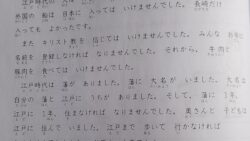 外国の船は 日本に 入っては いけませんでした。長崎だけ
入っても よかったです。
また キリスト教を 信じては いけませんでした。みんな お寺に
名前を 登録しなければ なりませんでした。それから、牛肉と
豚肉を 食べては いけませんでした。
江戸時代は 藩が ありました。藩に 大名が いました。大名は
自分の 藩と 江戸に うちが ありました。そして、藩に 1年、
江戸に 1年、住まなければ なりませんでした。奥さんと 子どもは
江戸に 住んで いました。江戸まで 歩いて 行かなければ